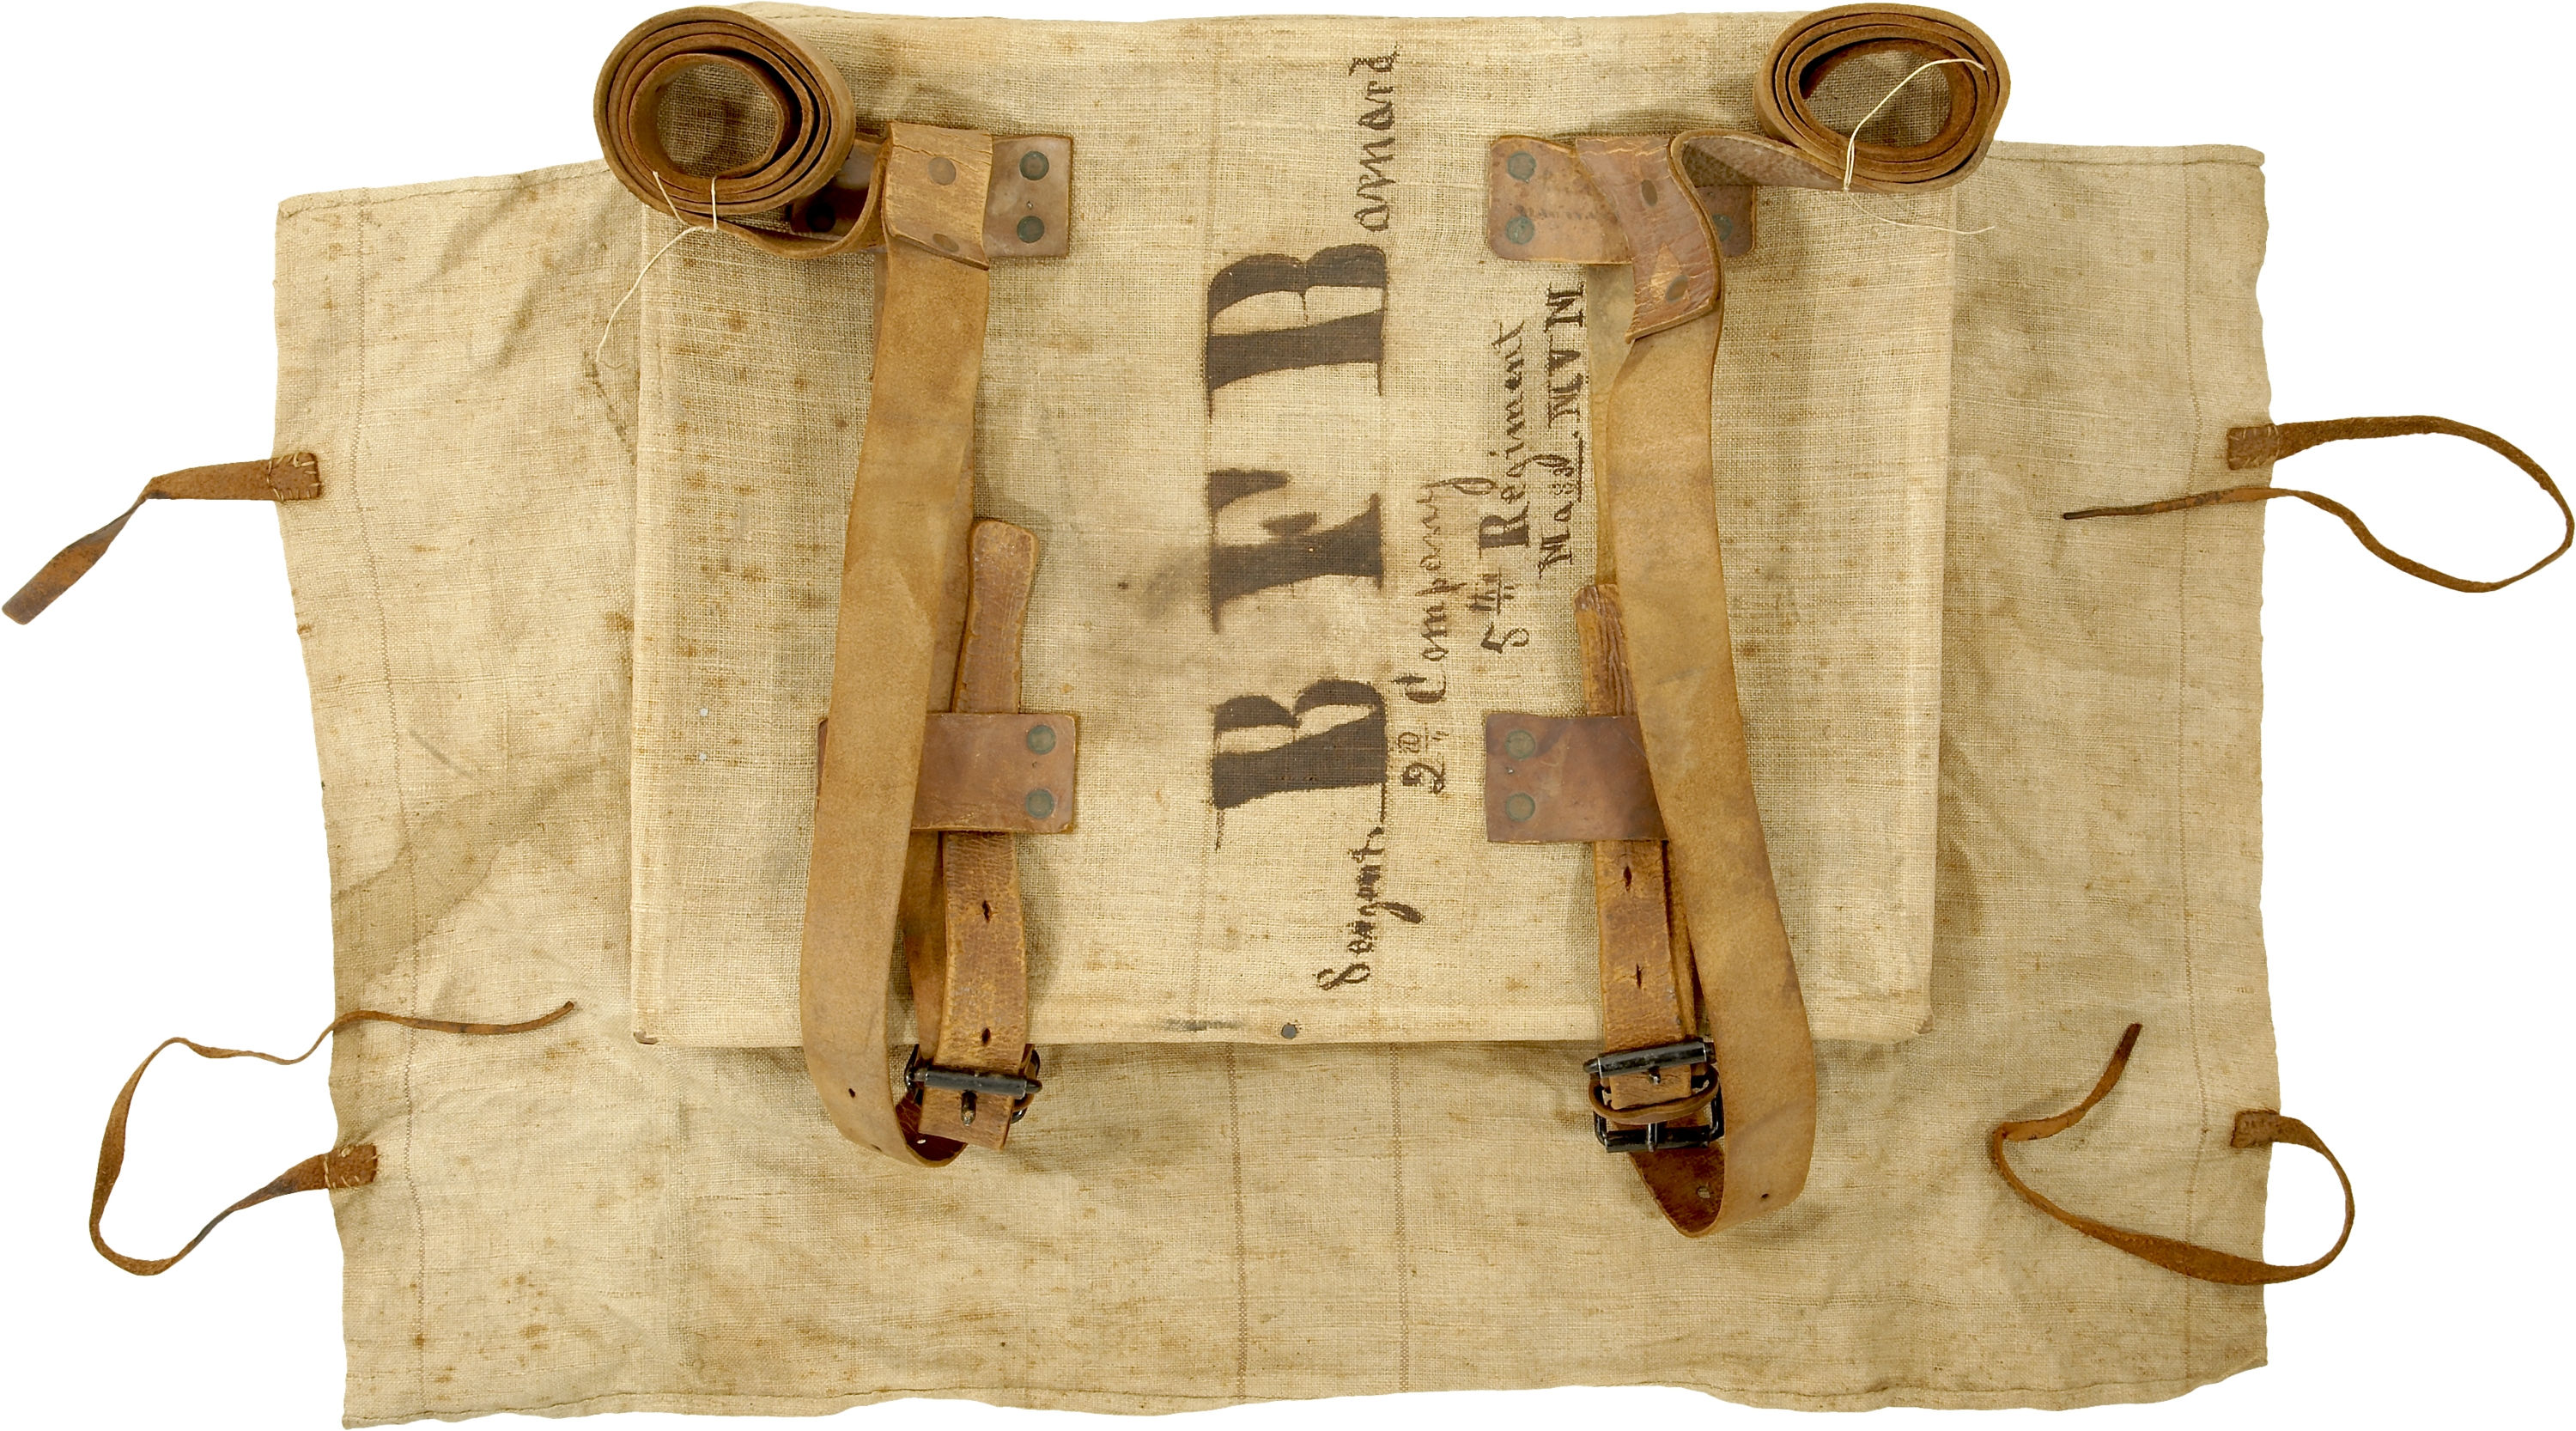 Sergent. B F Barnard
2D Company
5th Regiment
Mass. MVM